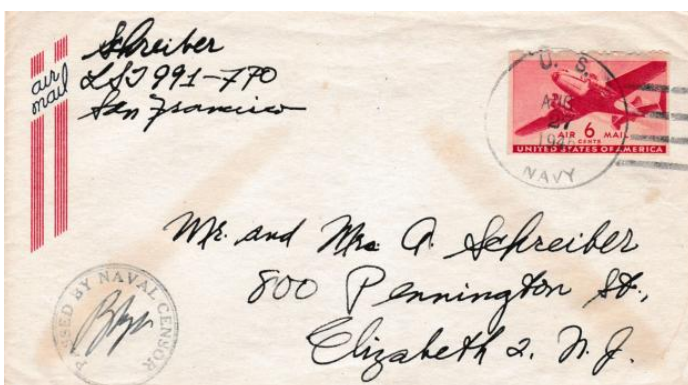 Schreiber
LST 991-770
San Francisco
air
mail
U. S.
AUG
27
AIR 6 MAIL
CENTS
UNITED STATES OF AMERICA
NAVY
Mr. and Mrs A. Schreiber
800 Pennington St.,
Elizabeth 2. N. J.
PASSED BY NAVAL CENSOR